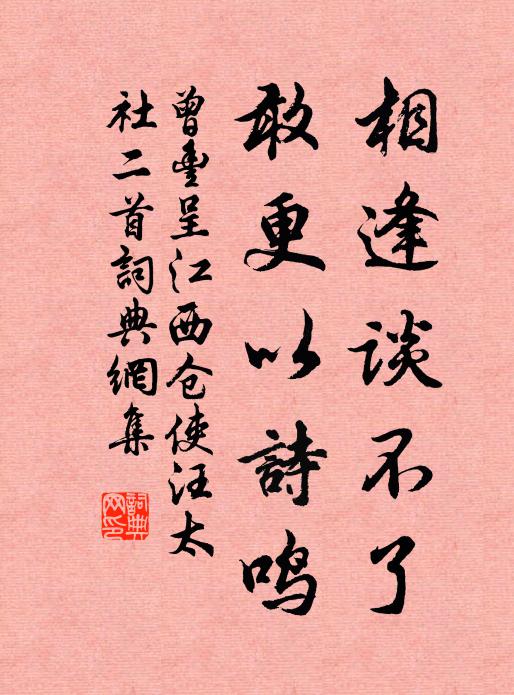 相逢谈不了
敢更以詩鸣
曾豊呈江西仓使汪太
社二首詞典網集
詞典網印